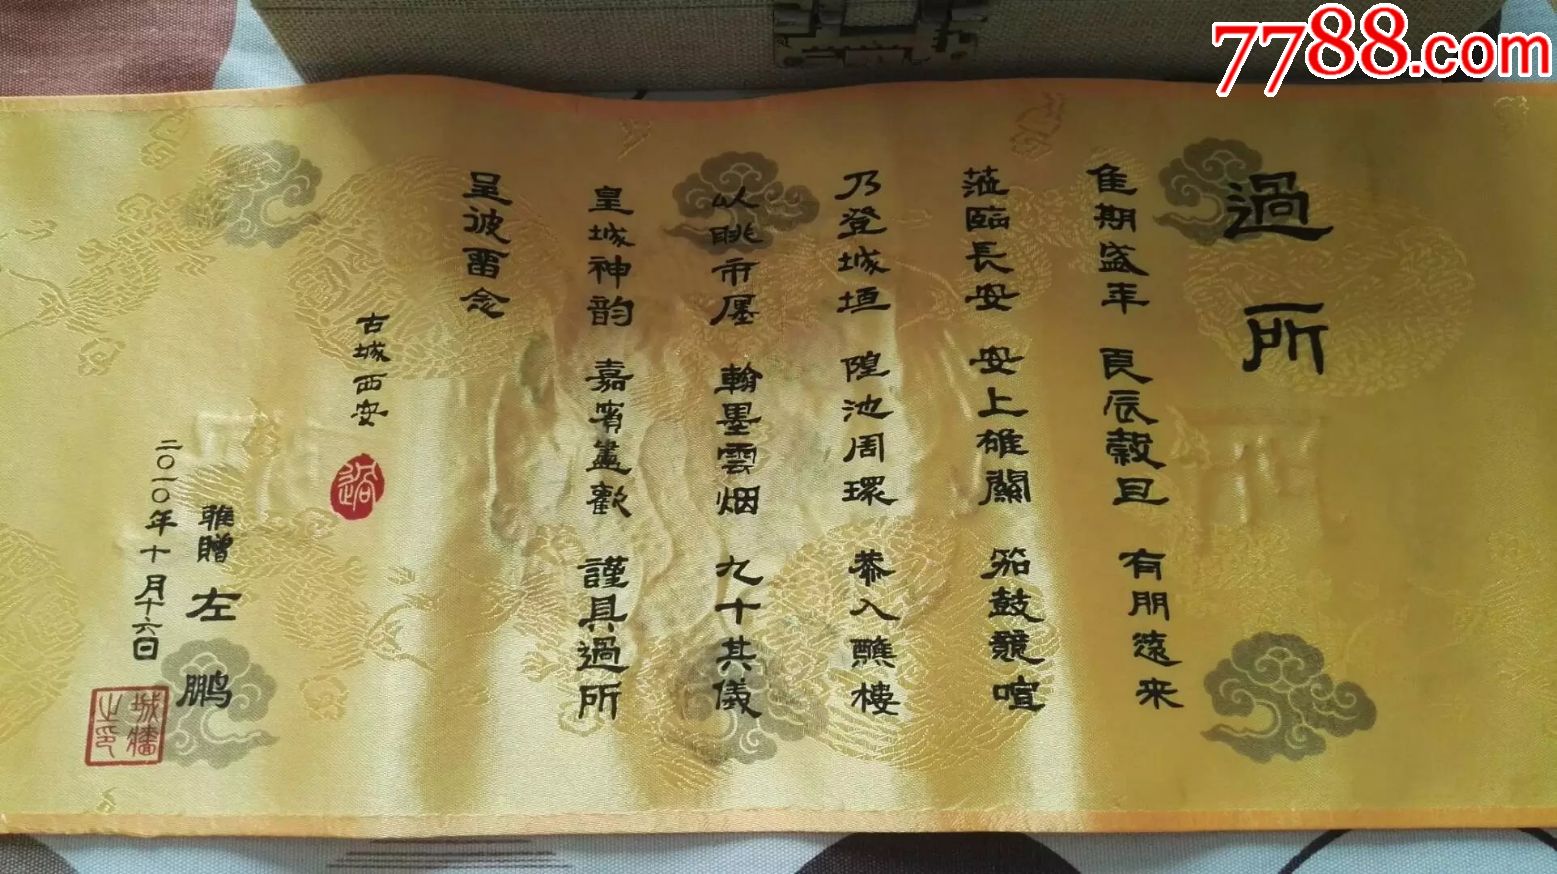 7788.com
過所
隹期盛年 良辰穀旦 有朋遠来
蒞臨長安 安上雄關 笳鼓競喧
乃登城垣 隍池周環 恭入醮樓
以眺市廛 翰墨雲烟 九十其儀
皇城神韵 嘉賓盡歡 謹具過所
呈彼畱念
古城西安
雅贈 左 鹏
二〇一〇年十月十六日
城牆之印